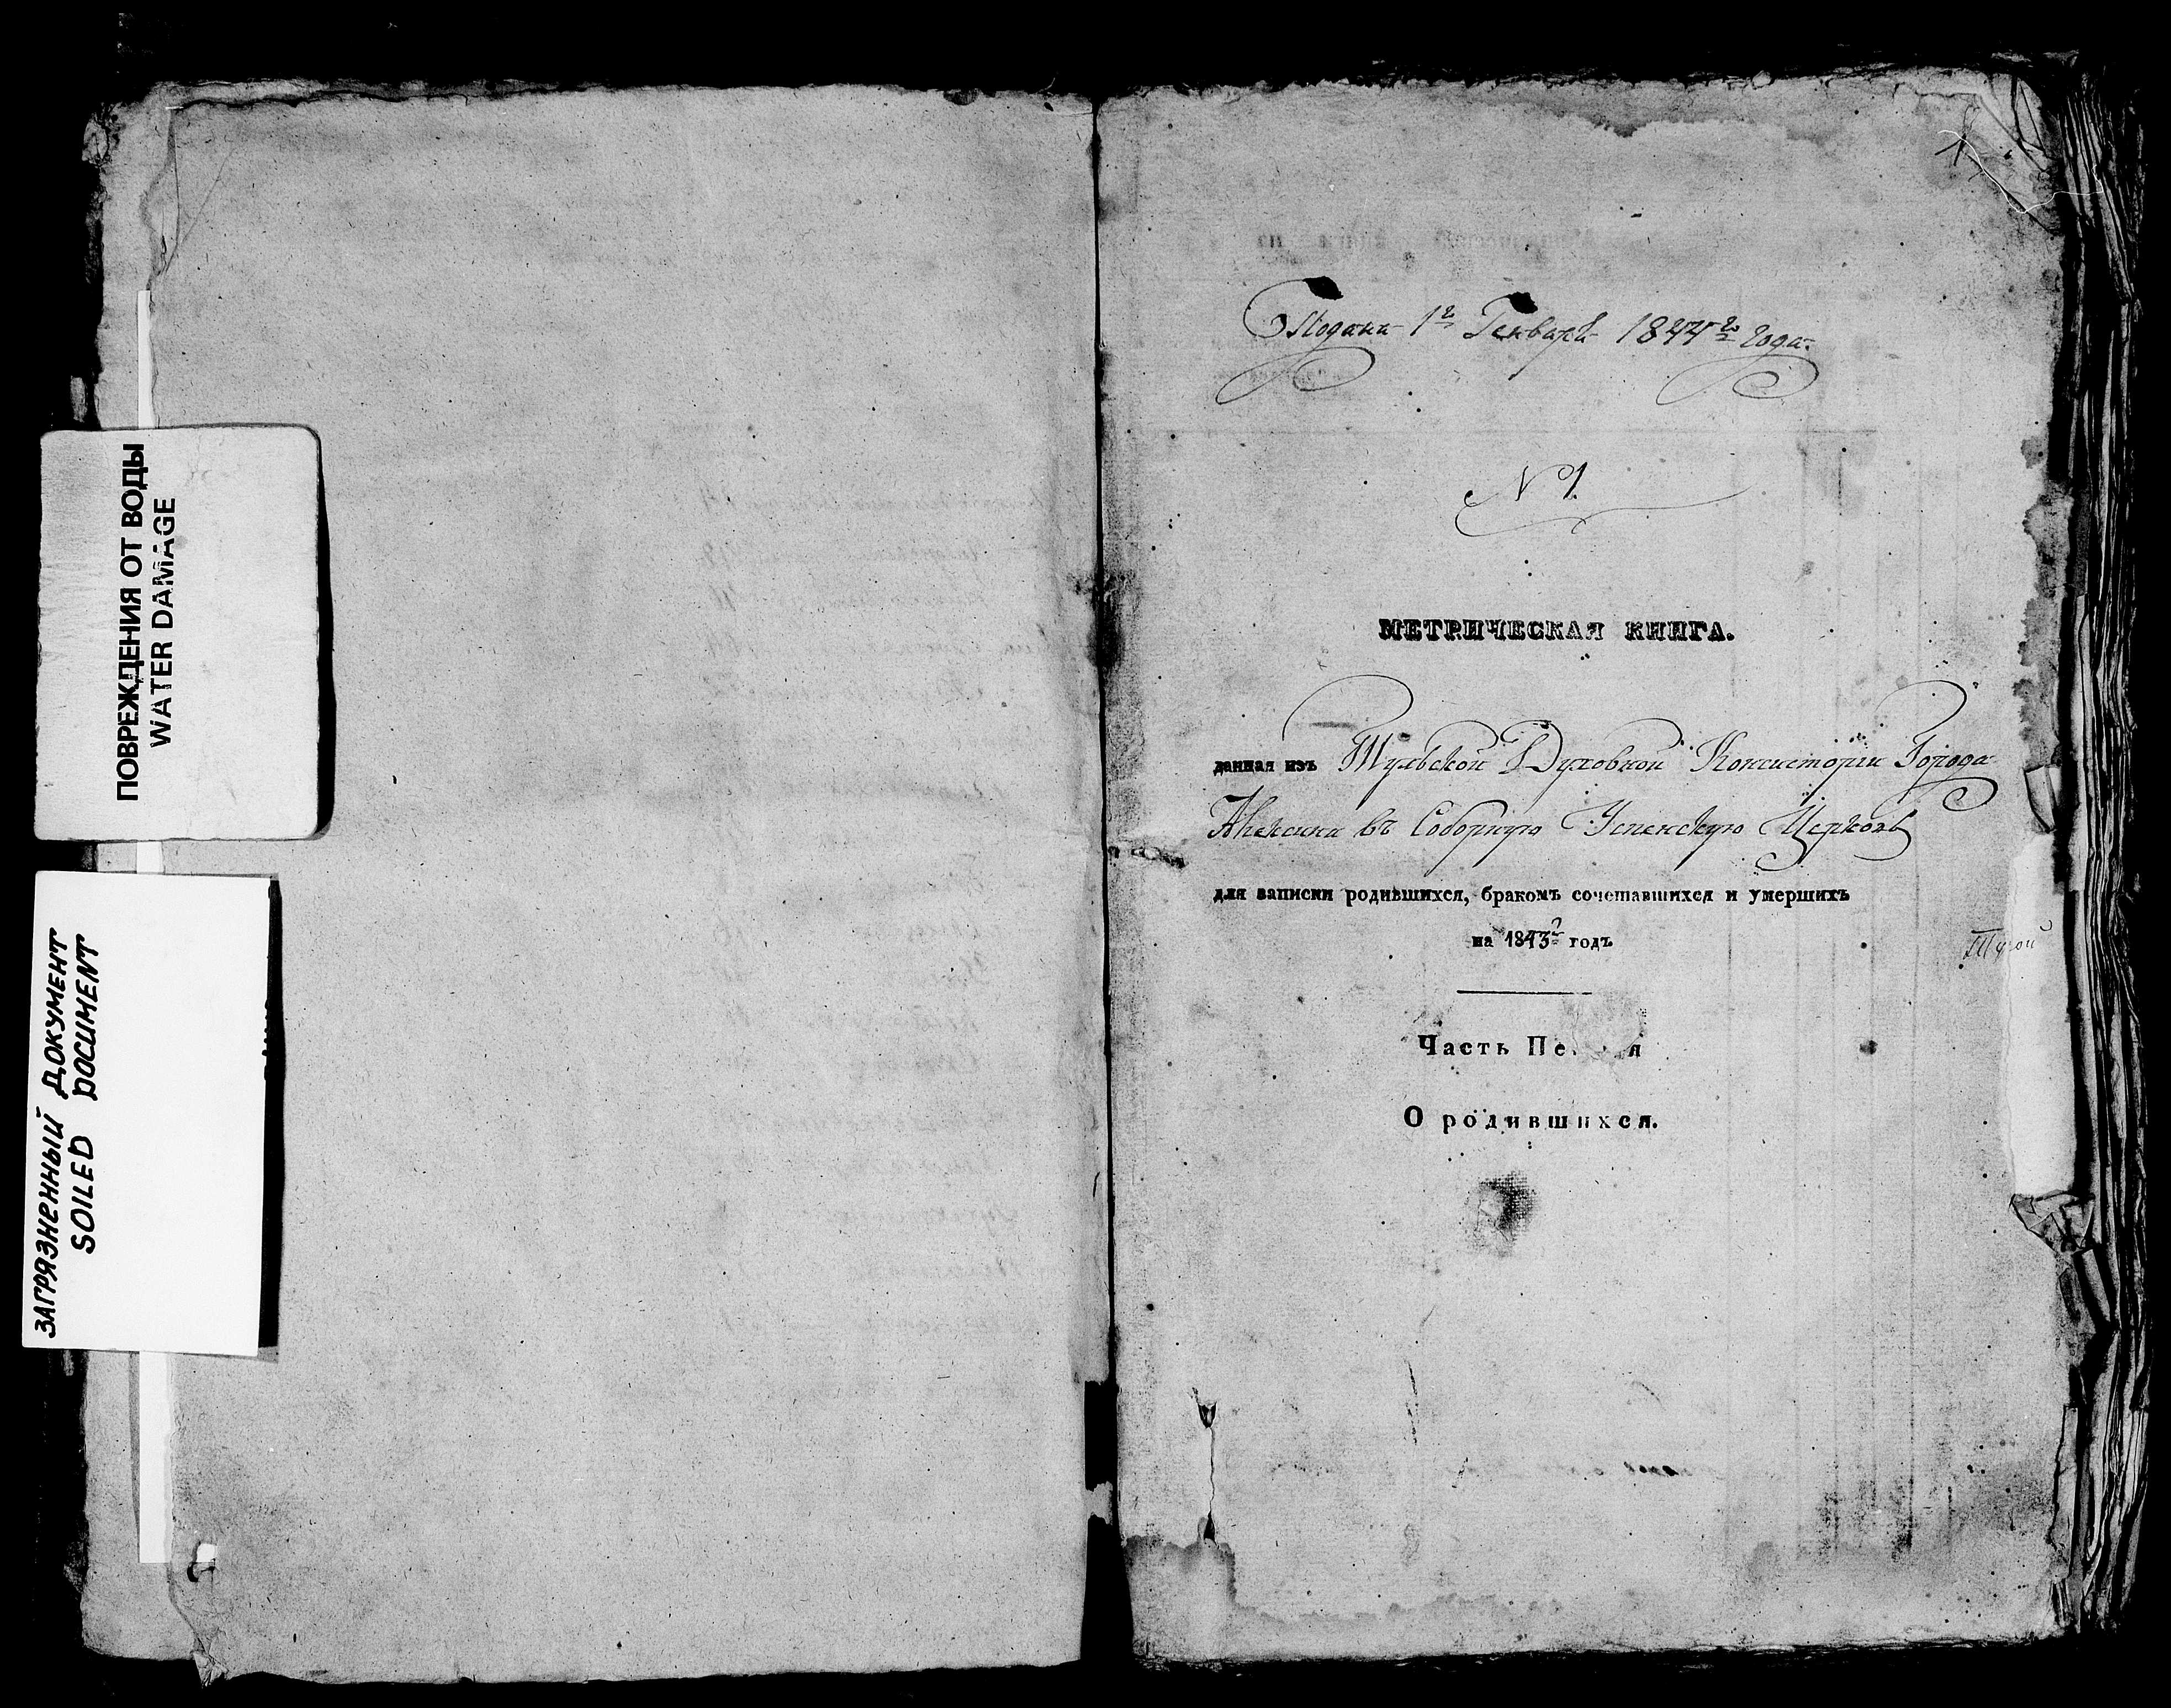 ПОВРЕЖДЕНИЯ ОТ ВОДЫ
WATER DAMAGE
ЗАГРЯЗНЕННЫЙ ДОКУМЕНТ
SOILED DOCUMENT
Подана 1го Генваря 1844го года.
N 1.
МЕТРИЧЕСКАЯ КНИГА.
данная изъ Тульской Духовной Консисторіи Города
Алексина въ Соборную Успенскую Церковь
для записки родившихся, бракомъ сочетавшихся и умершихъ
на 1843й годъ
Часть
О родившихся.